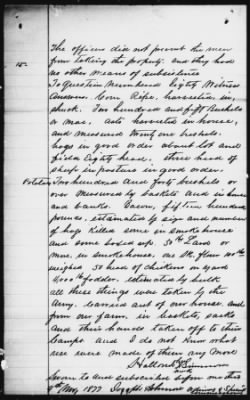 The officers did not prevent the men
from taking the property. and they had
no other means of subsistence
To Question Numbered Eighty Witness
Answers. Corn Ripe, harvested, in
shuck. Two hundred and fifty Bushels
or more. Oats harvested in house,
and measured twenty one bushels.
hogs in good order about lot and
field Eighty head. three head of
sheep in pasture in good order.
Potatoes Two hundred and forty bushels or
over measured by baskets and in house
and banks. Bacon, fifteen hundred
pounds, estimated by size and number
of hogs killed some in smokehouse
and some boxed up. 50 lbs Lard or
more, in smokehouse. one Bl. flour
weighed 50 head of chickens on yard
4,000 lbs fodder. estimated by bulk
all these things was taken by the
Army. carried out of our house and
from our farm, in baskets, sacks
and their hands taken off to their
camps and I do not know what
use were made of them any more
Sworn to and subscribed before me this
9th May, 1877 Joseph Johnson